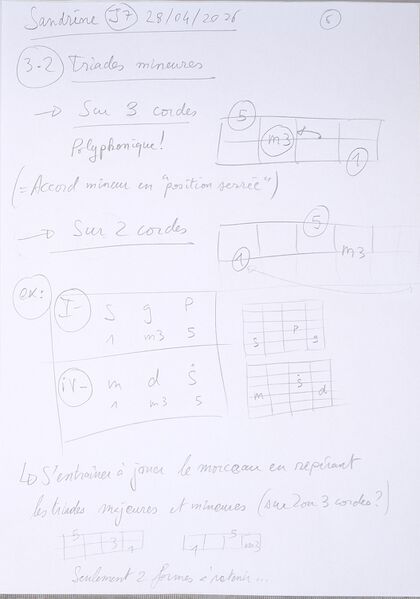 Sandrine J7 28/04/2026
3.2 Triades mineures
→ Sur 3 cordes
5
Polyphonique!
m3
1
(= Accord mineur en "position serrée")
→ Sur 2 cordes
5
m3
1
ex:
I- S g P
1 m3 5
P
S g
iv- m d Ṡ
1 m3 5
Ṡ
m d
↳ S'entraîner à jouer le morceau en repérant
les triades majeures et mineures (sur 2 ou 3 cordes?)
5
3 1
5
1 m3
Seulement 2 formes à retenir...